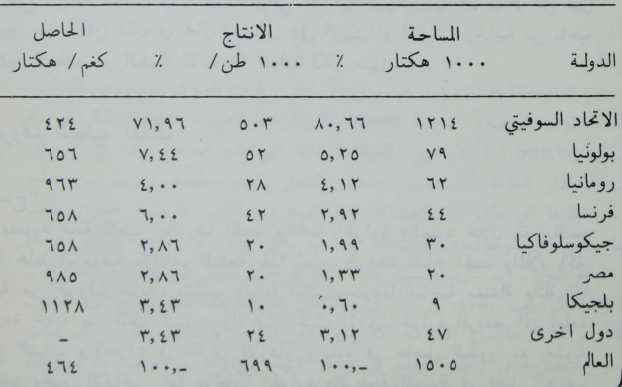 المساحة الانتاج الحاصل
الدولة ١٠٠٠ هكتار ٪ ١٠٠٠ طن/ ٪ كغم/ هكتار
الاتحاد السوفيتي ١٢١٤ ٨٠,٦٦ ٥٠٣ ٧١,٩٦ ٤٢٤
بولونيا ٧٩ ٥,٢٥ ٥٢ ٧,٤٤ ٦٥٦
رومانيا ٦٢ ٤,١٢ ٢٨ ٤,٠٠ ٩٦٣
فرنسا ٤٤ ٢,٩٢ ٤٢ ٦,٠٠ ٦٥٨
جيكوسلوفاكيا ٣٠ ١,٩٩ ٢٠ ٢,٨٦ ٦٥٨
مصر ٢٠ ١,٣٣ ٢٠ ٢,٨٦ ٩٨٥
بلجيكا ٩ ٠,٦٠ ٣,٤٣ ١١٢٨
دول اخرى ٤٧ ٣,١٢ ٢٤ ٣,٤٣ -
العالم ١٥٠٥ ١٠٠,- ٦٩٩ ١٠٠,- ٤٦٤